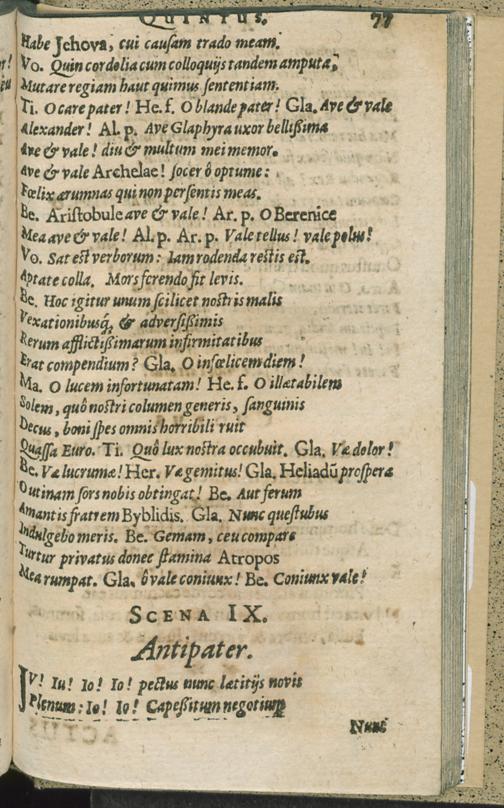 QUINTUS. 77
Habe Jehova, cui causam trado meam.
Vo. Quin cordolia cum colloquijs tandem amputa,
Mutare regiam haut quimus sententiam.
Ti. O care pater! He. f. O blande pater! Gla. Ave & vale
Alexander! Al. p. Ave Glaphyra uxor bellißima
Ave & vale! diu & multum mei memor.
Ave & vale Archelae! socer ô optume:
Fœlix ærumnas qui non persentis meas.
Be. Aristobule ave & vale! Ar. p. O Berenice
Mea ave & vale! Al. p. Ar. p. Vale tellus! vale polus!
Vo. Sat est verborum: Iam rodenda restis est.
Aptate colla. Mors ferendo fit levis.
Be. Hoc igitur unum scilicet nostris malis
Vexationibusq́, & adversißimis
Rerum afflictißimarum infirmitatibus
Erat compendium? Gla. O infœlicem diem!
Ma. O lucem infortunatam! He. f. O illætabilem
Solem, quô nostri columen generis, sanguinis
Decus, boni spes omnis horribili ruit
Quassa Euro. Ti. Quô lux nostra occubuit. Gla. Væ dolor!
Be. Væ lucrumæ! Her. Væ gemitus! Gla. Heliadũ prosperæ
O utinam sors nobis obtingat! Be. Aut ferum
Amantis fratrem Byblidis. Gla. Nunc questubus
Indulgebo meris. Be. Gemam, ceu compare
Turtur privatus donec stamina Atropos
Mea rumpat. Gla. ô vale coniunx! Be. Coniunx vale!
SCENA IX.
Antipater.
IV! Iu! Io! Io! pectus nunc lætitijs novis
Plenum: Io! Io! Capeßitum negotium
Nunc